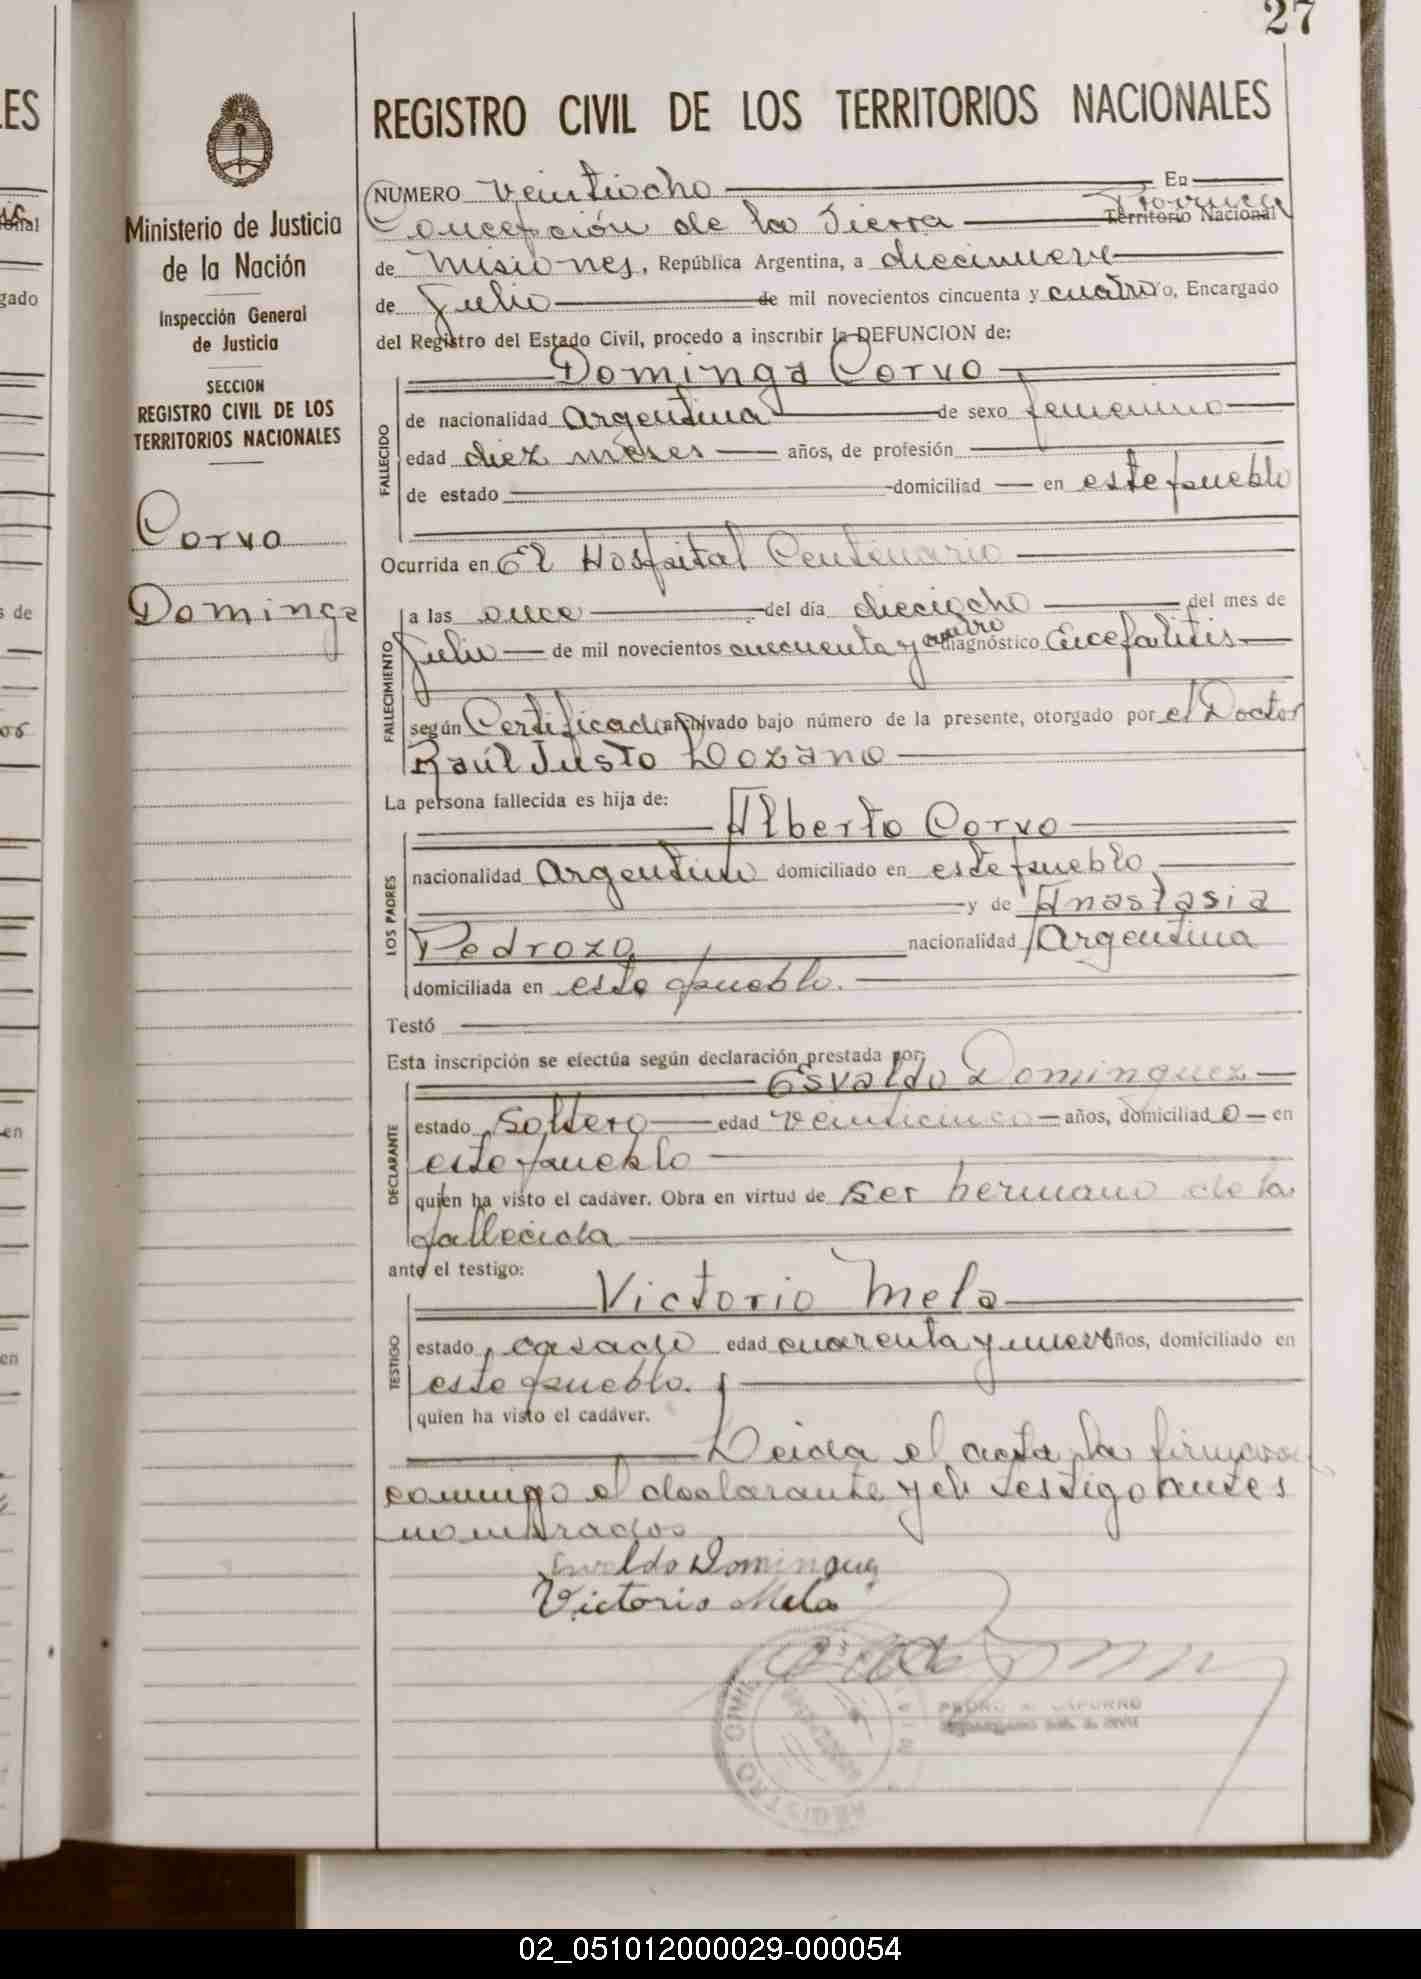 27
REGISTRO CIVIL DE LOS TERRITORIOS NACIONALES
Ministerio de Justicia
de la Nación
Inspección General
de Justicia
SECCION
REGISTRO CIVIL DE LOS
TERRITORIOS NACIONALES
Corvo
Dominga
NUMERO veintiocho En
Concepción de la Sierra Provincia Territorio Nacional
de Misiones, República Argentina, a diecinueve
de Julio de mil novecientos cincuenta y cuatro, Encargado
del Registro del Estado Civil, procedo a inscribir la DEFUNCION de:
Dominga Corvo
FALLECIDO
de nacionalidad argentina de sexo femenino
edad diez meses años, de profesión
de estado domiciliad en este pueblo
Ocurrida en El Hospital Centenario
FALLECIMIENTO
a las once del día dieciocho del mes de
Julio de mil novecientos cincuenta y cuatro diagnóstico Encefalitis
según Certificado archivado bajo número de la presente, otorgado por el Doctor
Raúl Justo Lozano
La persona fallecida es hija de:
Alberto Corvo
LOS PADRES
nacionalidad argentino domiciliado en este pueblo
y de Anastasia
Pedrozo nacionalidad Argentina
domiciliada en este pueblo.
Testó
Esta inscripción se efectúa según declaración prestada por:
Esvaldo Dominguez
DECLARANTE
estado soltero edad veinticinco años, domiciliado en
este pueblo
quien ha visto el cadáver. Obra en virtud de ser hermano de la
fallecida
ante el testigo:
Victorio Mela
TESTIGO
estado casado edad cuarenta y nueve años, domiciliado en
este pueblo.
quien ha visto el cadáver.
Leida el acta la firman
conmigo el declarante y el testigo antes
nombrados
Victorio Mela
REGISTRO CIVIL
02_051012000029-000054